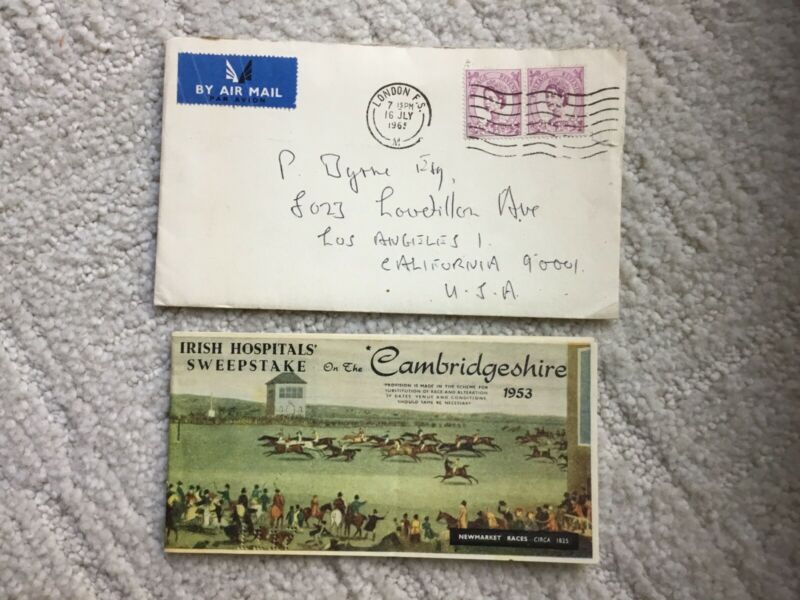 BY AIR MAIL
PAR AVION
LONDON F.S.
7 15PM
16 JLY
1965
M
P. Byrne Esq,
8023 Ave
LOS ANGELES 1.
CALIFORNIA 90001.
U.S.A.
IRISH HOSPITALS'
SWEEPSTAKE On The "Cambridgeshire
"PROVISION IS MADE IN THE SCHEME FOR
SUBSTITUTION OF RACE AND ALTERATION
OF DATES VENUE AND CONDITIONS
SHOULD SAME BE NECESSARY"
1953
NEWMARKET RACES CIRCA 1825